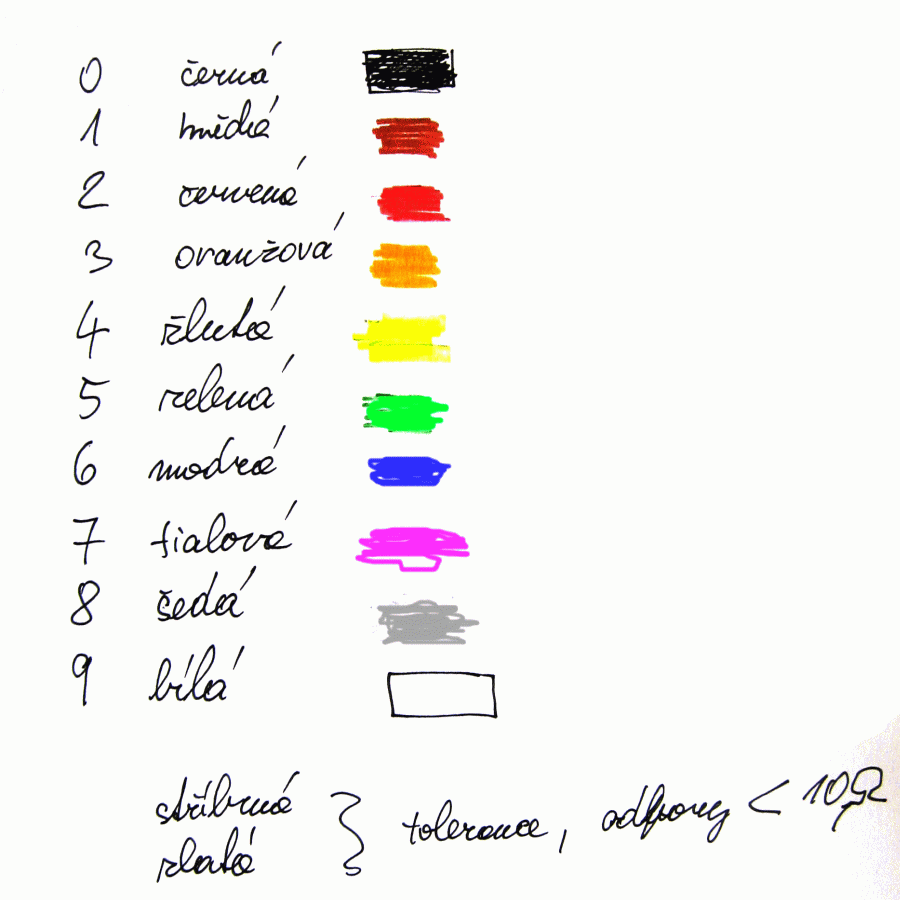 0 černá
1 hnědá
2 červená
3 oranžová
4 žlutá
5 zelená
6 modrá
7 fialová
8 šedá
9 bílá
stříbrná
zlatá } tolerance, odpory < 10Ω